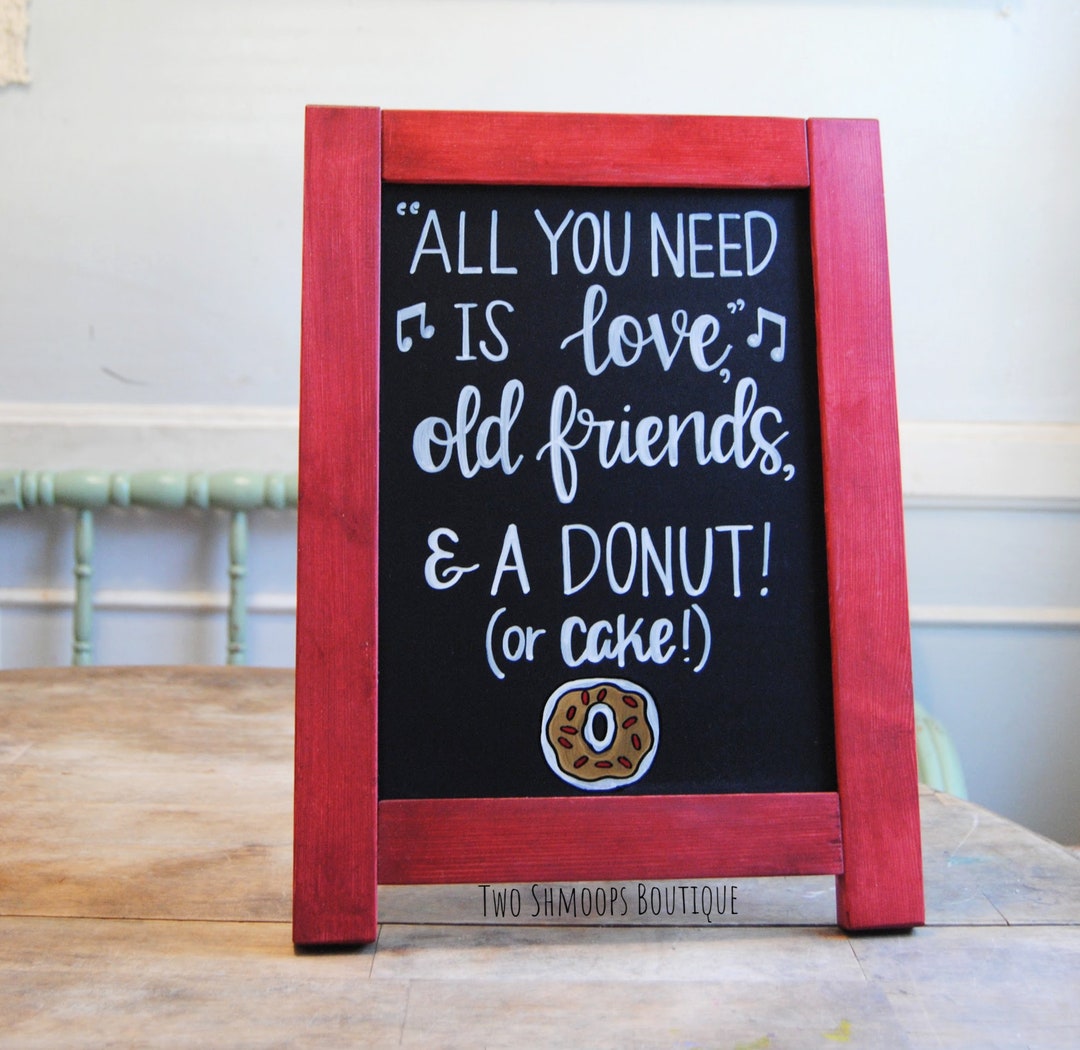 “ALL YOU NEED
IS love,”
old friends,
& A DONUT!
(or cake!)
TWO SHMOOPS BOUTIQUE